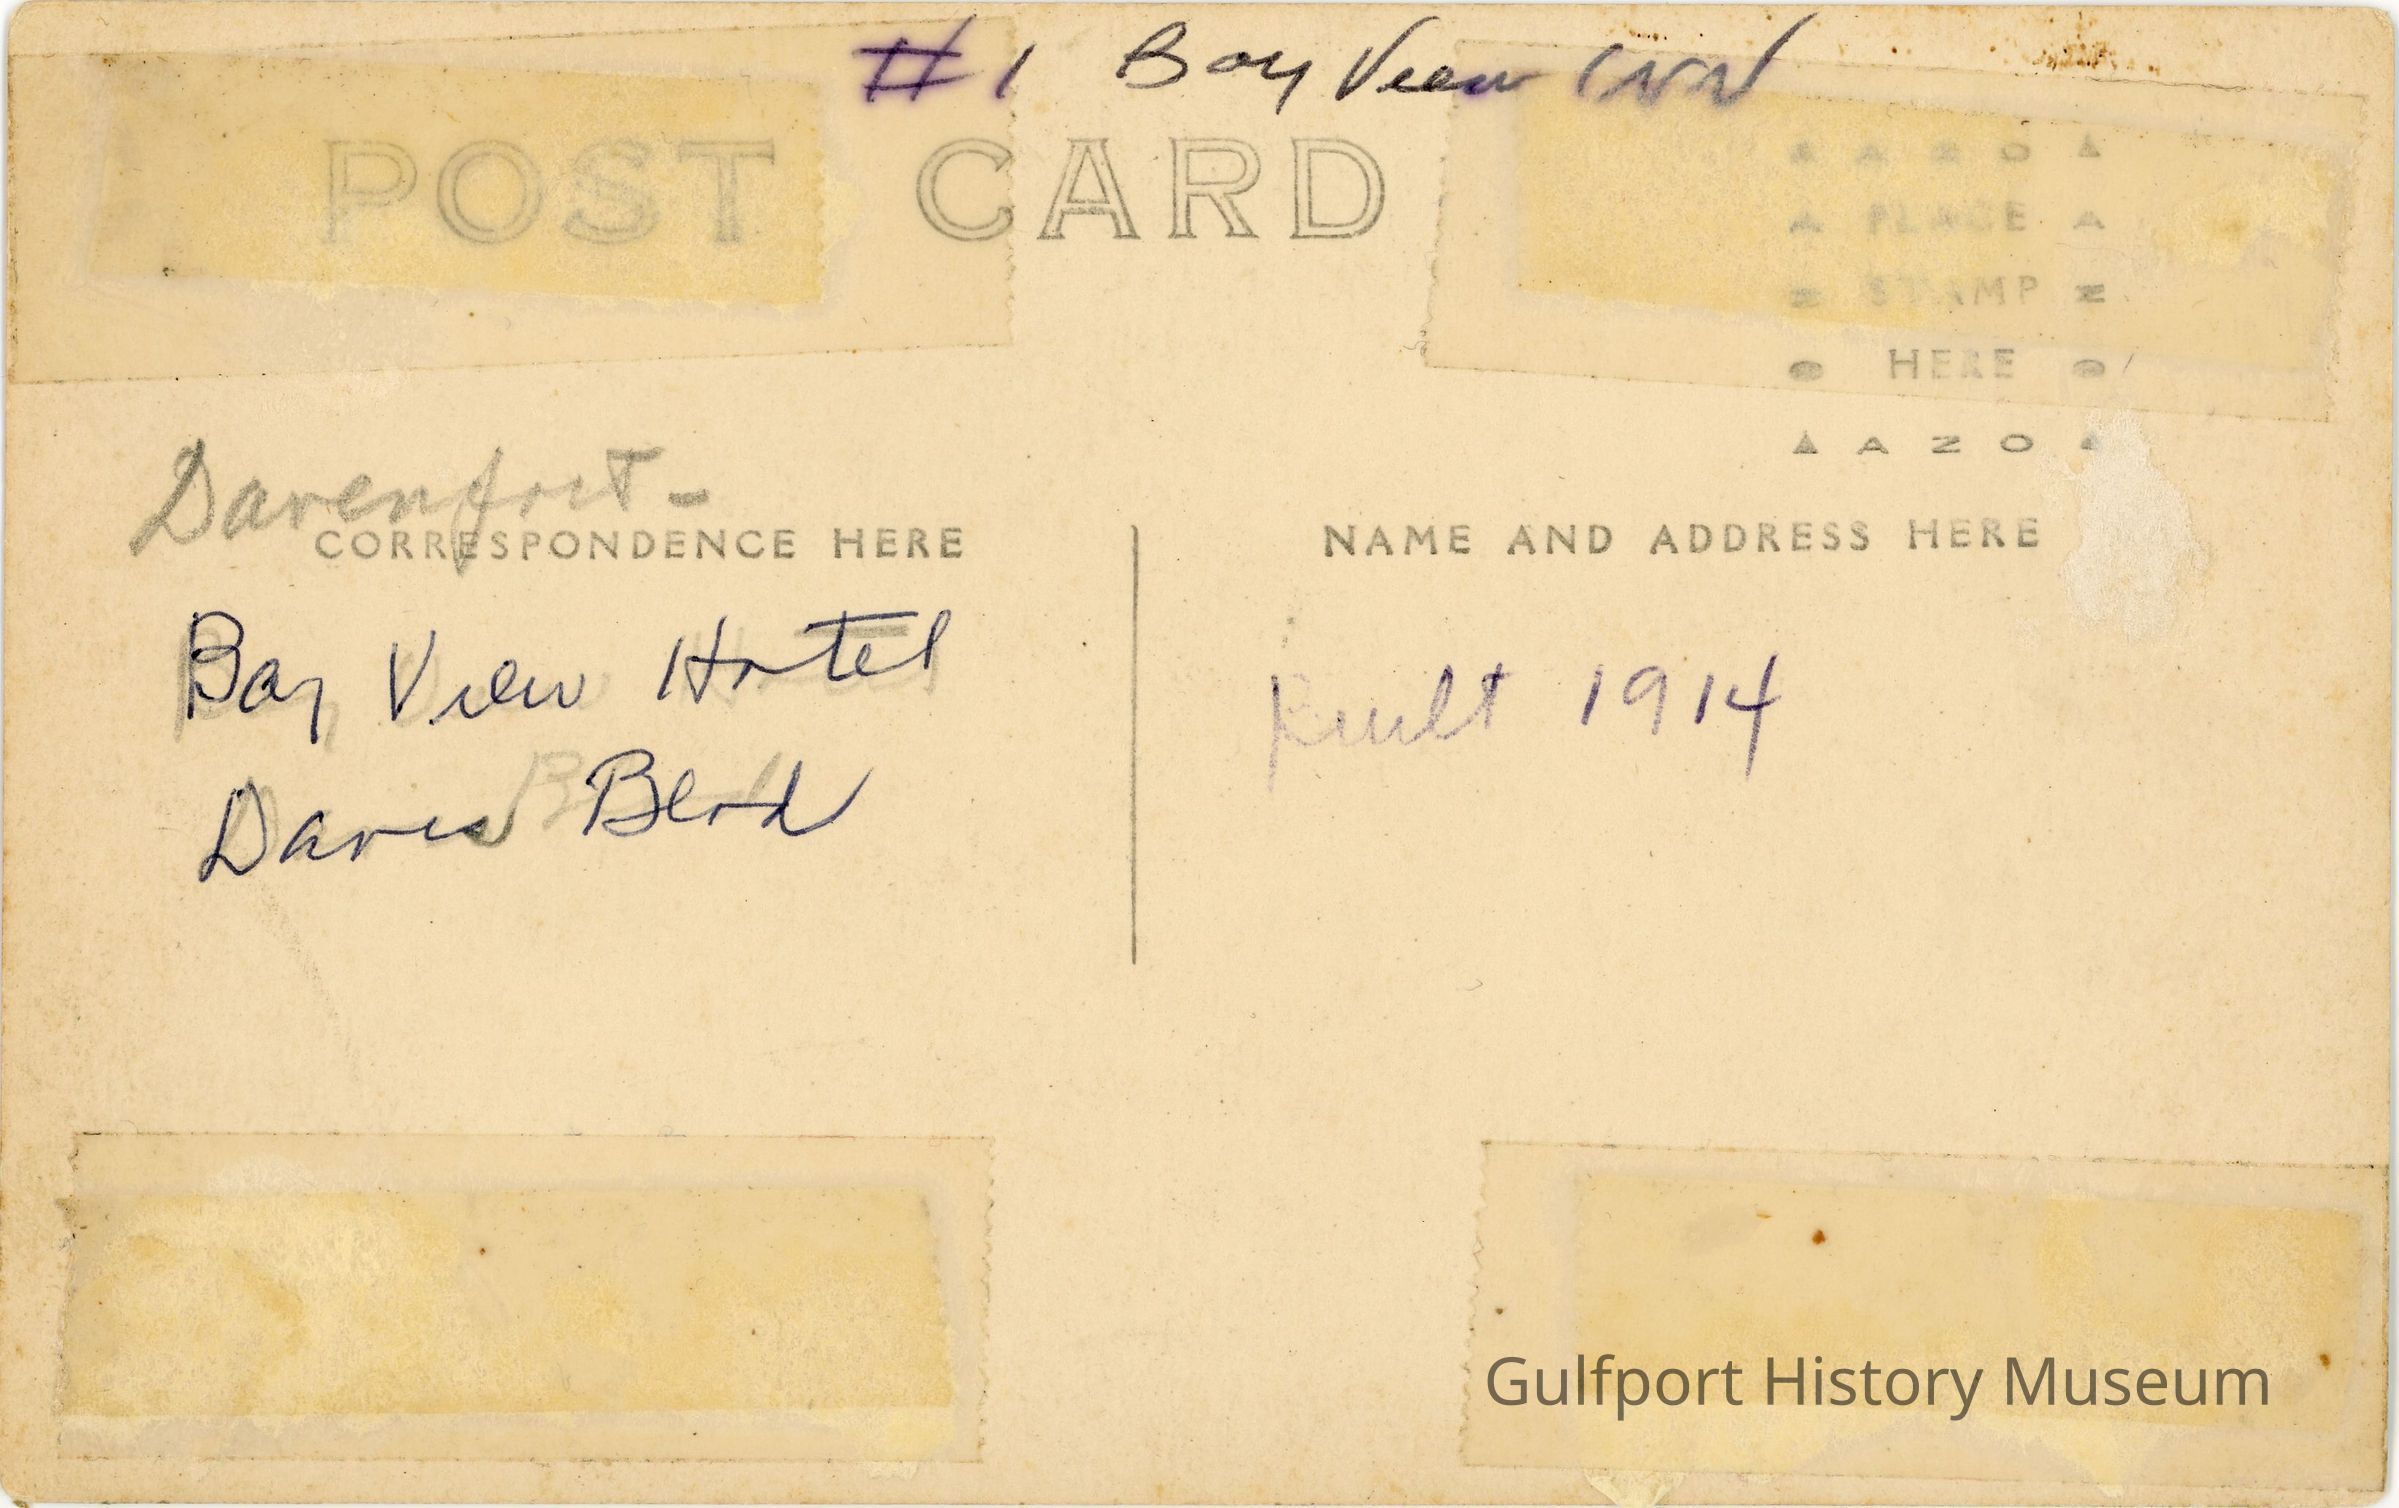 #1 Bay View INN
POST CARD
▲ A Z O ▲
A PLACE A
N STAMP N
O HERE O
▲ A Z O ▲
Davenport -
CORRESPONDENCE HERE
NAME AND ADDRESS HERE
Bay View Hotel
Davis Blvd
Built 1914
Gulfport History Museum